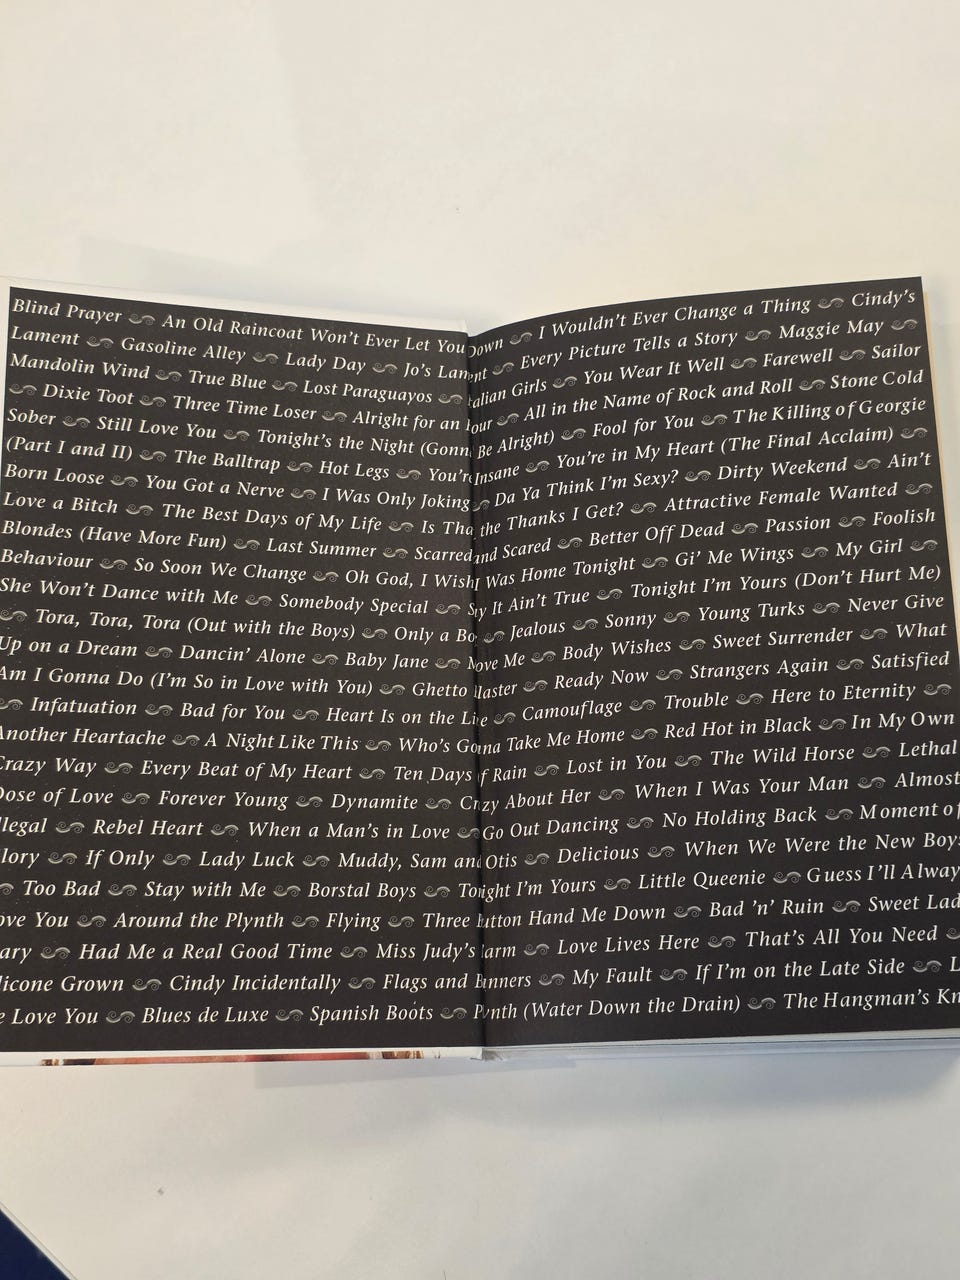 Blind Prayer An Old Raincoat Won't Ever Let You Down I Wouldn't Ever Change a Thing Cindy's
Lament Gasoline Alley Lady Day Jo's Lament Every Picture Tells a Story Maggie May
Mandolin Wind True Blue Lost Paraguayos Italian Girls You Wear It Well Farewell Sailor
Dixie Toot Three Time Loser Alright for an Hour All in the Name of Rock and Roll Stone Cold
Sober Still Love You Tonight's the Night (Gonna Be Alright) Fool for You The Killing of Georgie
(Part I and II) The Balltrap Hot Legs You're Insane You're in My Heart (The Final Acclaim)
Born Loose You Got a Nerve I Was Only Joking Da Ya Think I'm Sexy? Dirty Weekend Ain't
Love a Bitch The Best Days of My Life Is That the Thanks I Get? Attractive Female Wanted
Blondes (Have More Fun) Last Summer Scarred and Scared Better Off Dead Passion Foolish
Behaviour So Soon We Change Oh God, I Wish I Was Home Tonight Gi' Me Wings My Girl
She Won't Dance with Me Somebody Special Say It Ain't True Tonight I'm Yours (Don't Hurt Me)
Tora, Tora, Tora (Out with the Boys) Only a Boy Jealous Sonny Young Turks Never Give
Up on a Dream Dancin' Alone Baby Jane Move Me Body Wishes Sweet Surrender What
Am I Gonna Do (I'm So in Love with You) Ghetto Blaster Ready Now Strangers Again Satisfied
Infatuation Bad for You Heart Is on the Line Camouflage Trouble Here to Eternity
Another Heartache A Night Like This Who's Gonna Take Me Home Red Hot in Black In My Own
Crazy Way Every Beat of My Heart Ten Days of Rain Lost in You The Wild Horse Lethal
Dose of Love Forever Young Dynamite Crazy About Her When I Was Your Man Almost
llegal Rebel Heart When a Man's in Love Go Out Dancing No Holding Back Moment of
lory If Only Lady Luck Muddy, Sam and Otis Delicious When We Were the New Boys
Too Bad Stay with Me Borstal Boys Tonight I'm Yours Little Queenie Guess I'll Alway
ove You Around the Plynth Flying Three Button Hand Me Down Bad 'n' Ruin Sweet Lad
ary Had Me a Real Good Time Miss Judy's Farm Love Lives Here That's All You Need
licone Grown Cindy Incidentally Flags and Banners My Fault If I'm on the Late Side L
e Love You Blues de Luxe Spanish Boots Plynth (Water Down the Drain) The Hangman's Kn